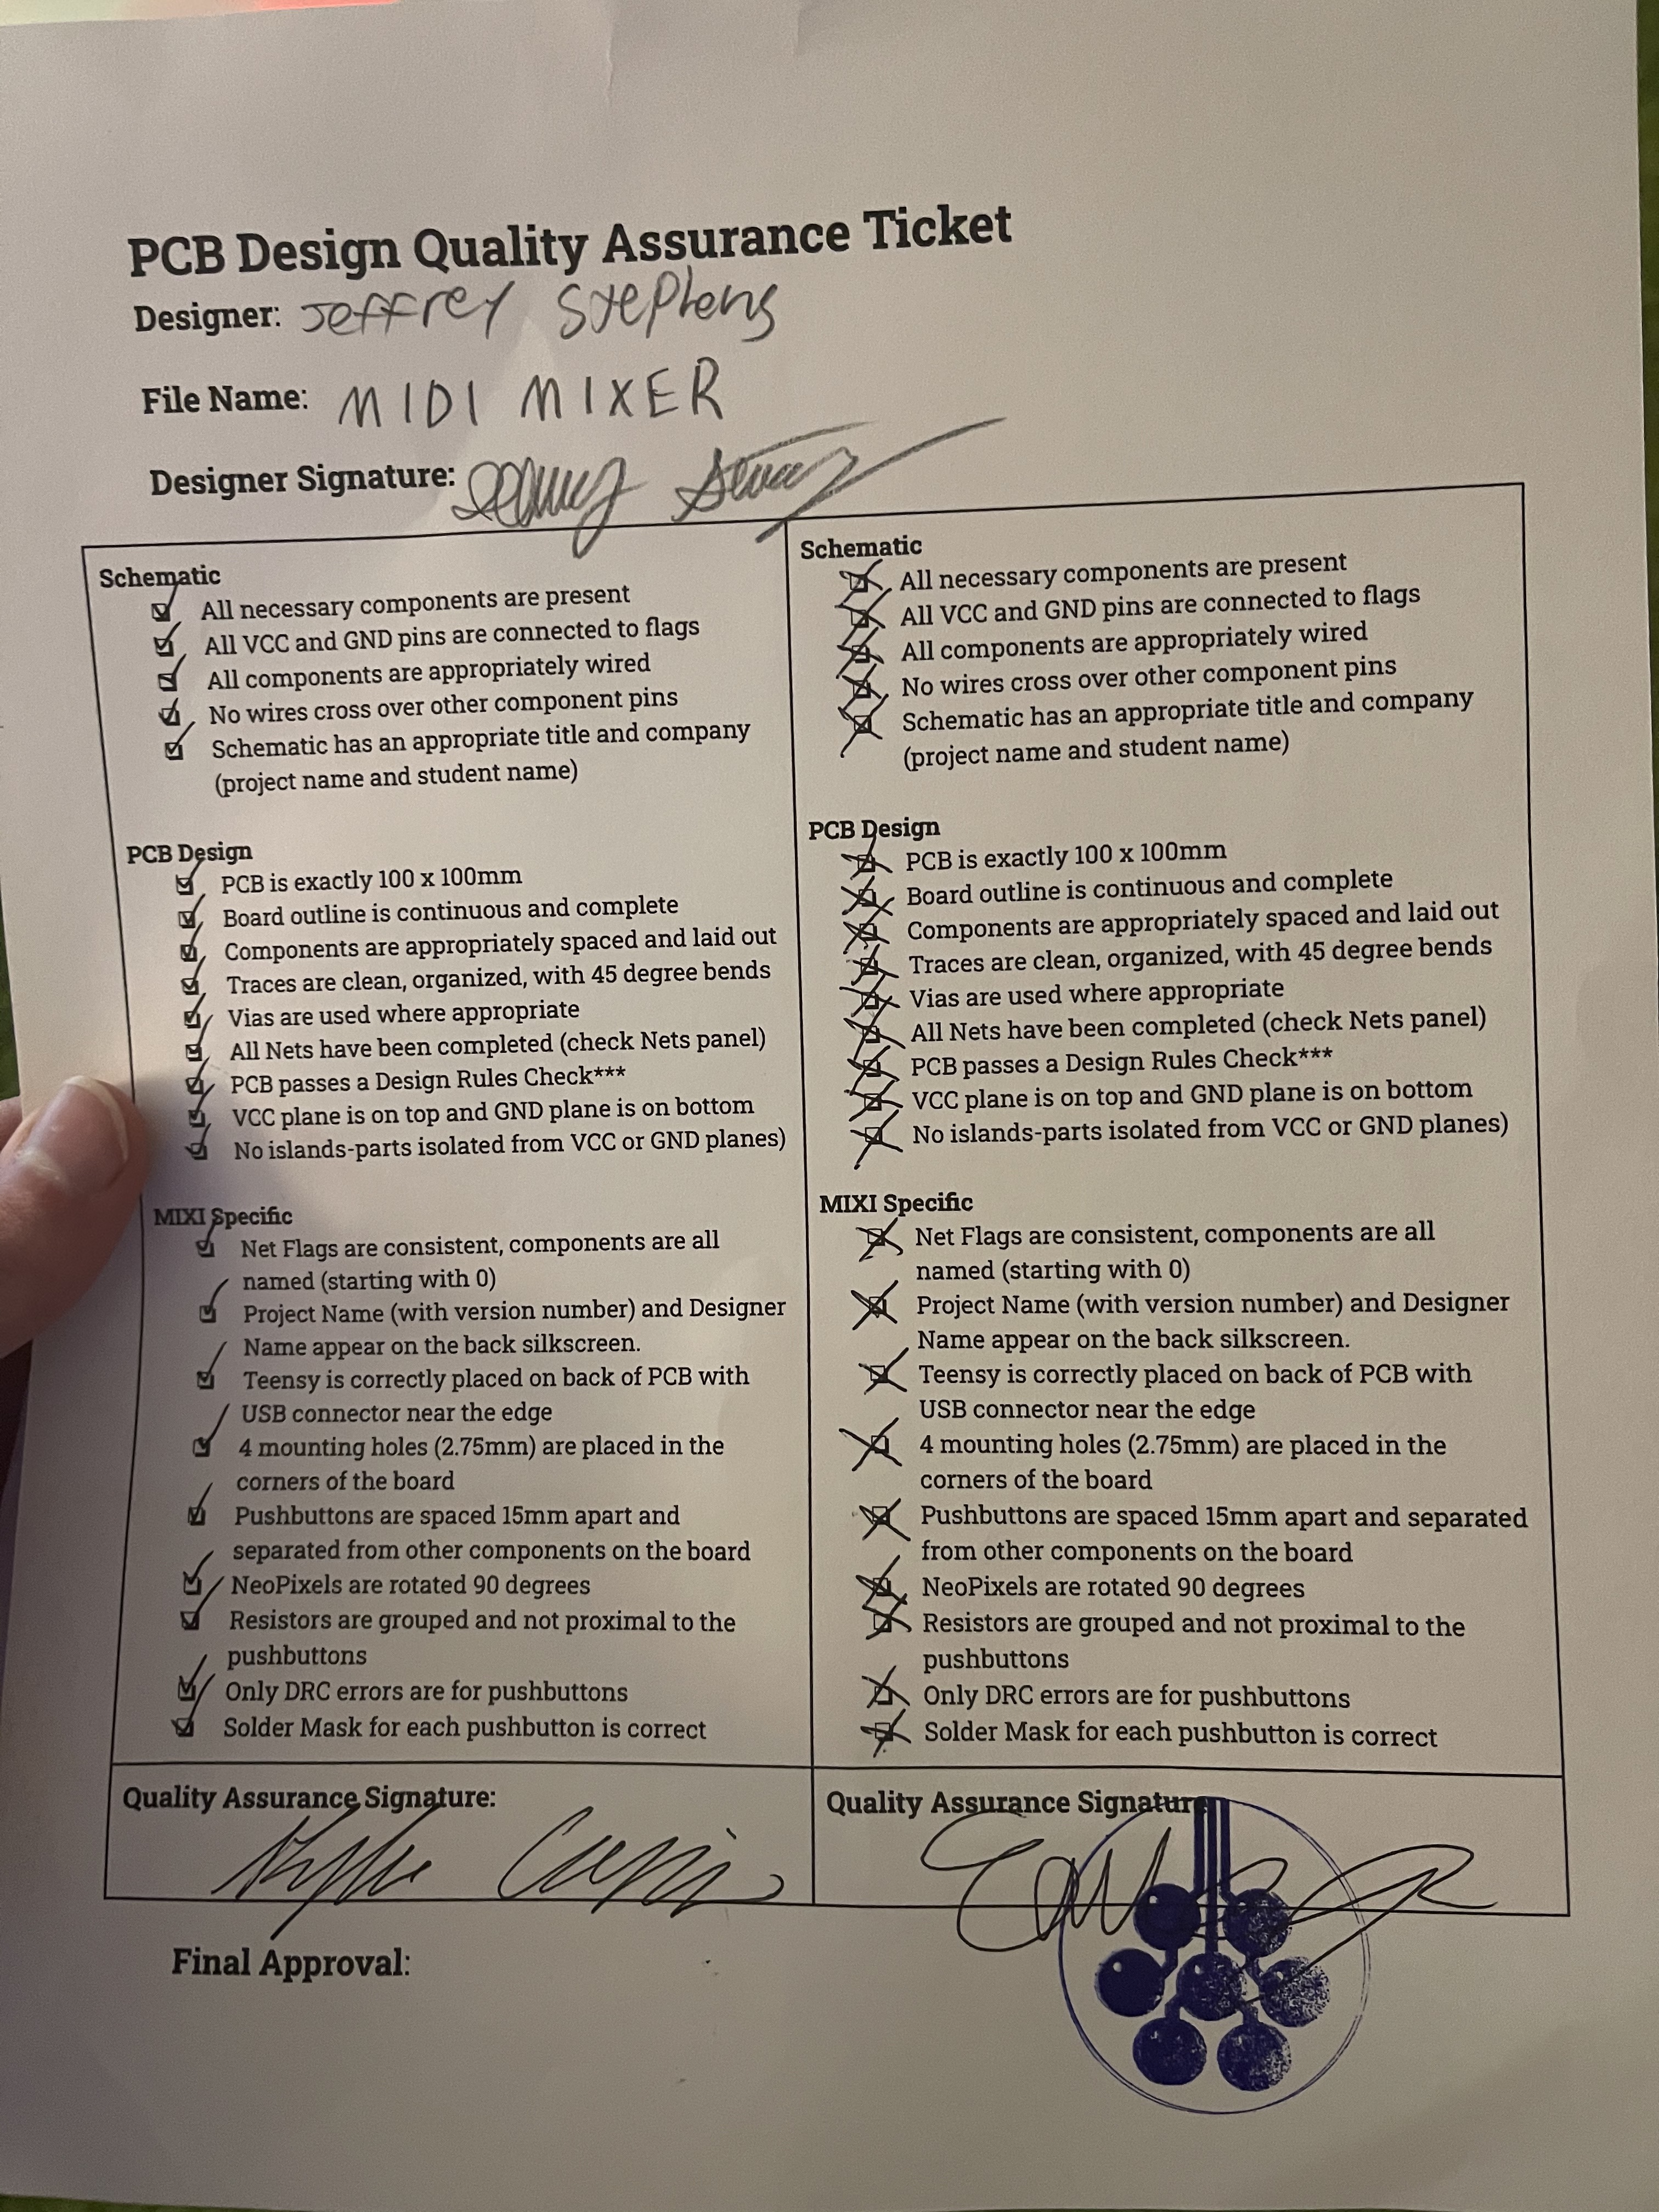 PCB Design Quality Assurance Ticket
Designer: Jeffrey Stephens
File Name: MIDI MIXER
Designer Signature:
Schematic
All necessary components are present
All VCC and GND pins are connected to flags
All components are appropriately wired
No wires cross over other component pins
Schematic has an appropriate title and company
(project name and student name)
PCB Design
PCB is exactly 100 x 100mm
Board outline is continuous and complete
Components are appropriately spaced and laid out
Traces are clean, organized, with 45 degree bends
Vias are used where appropriate
All Nets have been completed (check Nets panel)
PCB passes a Design Rules Check***
VCC plane is on top and GND plane is on bottom
No islands-parts isolated from VCC or GND planes)
MIXI Specific
Net Flags are consistent, components are all
named (starting with 0)
Project Name (with version number) and Designer
Name appear on the back silkscreen.
Teensy is correctly placed on back of PCB with
USB connector near the edge
4 mounting holes (2.75mm) are placed in the
corners of the board
Pushbuttons are spaced 15mm apart and
separated from other components on the board
NeoPixels are rotated 90 degrees
Resistors are grouped and not proximal to the
pushbuttons
Only DRC errors are for pushbuttons
Solder Mask for each pushbutton is correct
Quality Assurance Signature:
Schematic
All necessary components are present
All VCC and GND pins are connected to flags
All components are appropriately wired
No wires cross over other component pins
Schematic has an appropriate title and company
(project name and student name)
PCB Design
PCB is exactly 100 x 100mm
Board outline is continuous and complete
Components are appropriately spaced and laid out
Traces are clean, organized, with 45 degree bends
Vias are used where appropriate
All Nets have been completed (check Nets panel)
PCB passes a Design Rules Check***
VCC plane is on top and GND plane is on bottom
No islands-parts isolated from VCC or GND planes)
MIXI Specific
Net Flags are consistent, components are all
named (starting with 0)
Project Name (with version number) and Designer
Name appear on the back silkscreen.
Teensy is correctly placed on back of PCB with
USB connector near the edge
4 mounting holes (2.75mm) are placed in the
corners of the board
Pushbuttons are spaced 15mm apart and separated
from other components on the board
NeoPixels are rotated 90 degrees
Resistors are grouped and not proximal to the
pushbuttons
Only DRC errors are for pushbuttons
Solder Mask for each pushbutton is correct
Quality Assurance Signature
Final Approval: